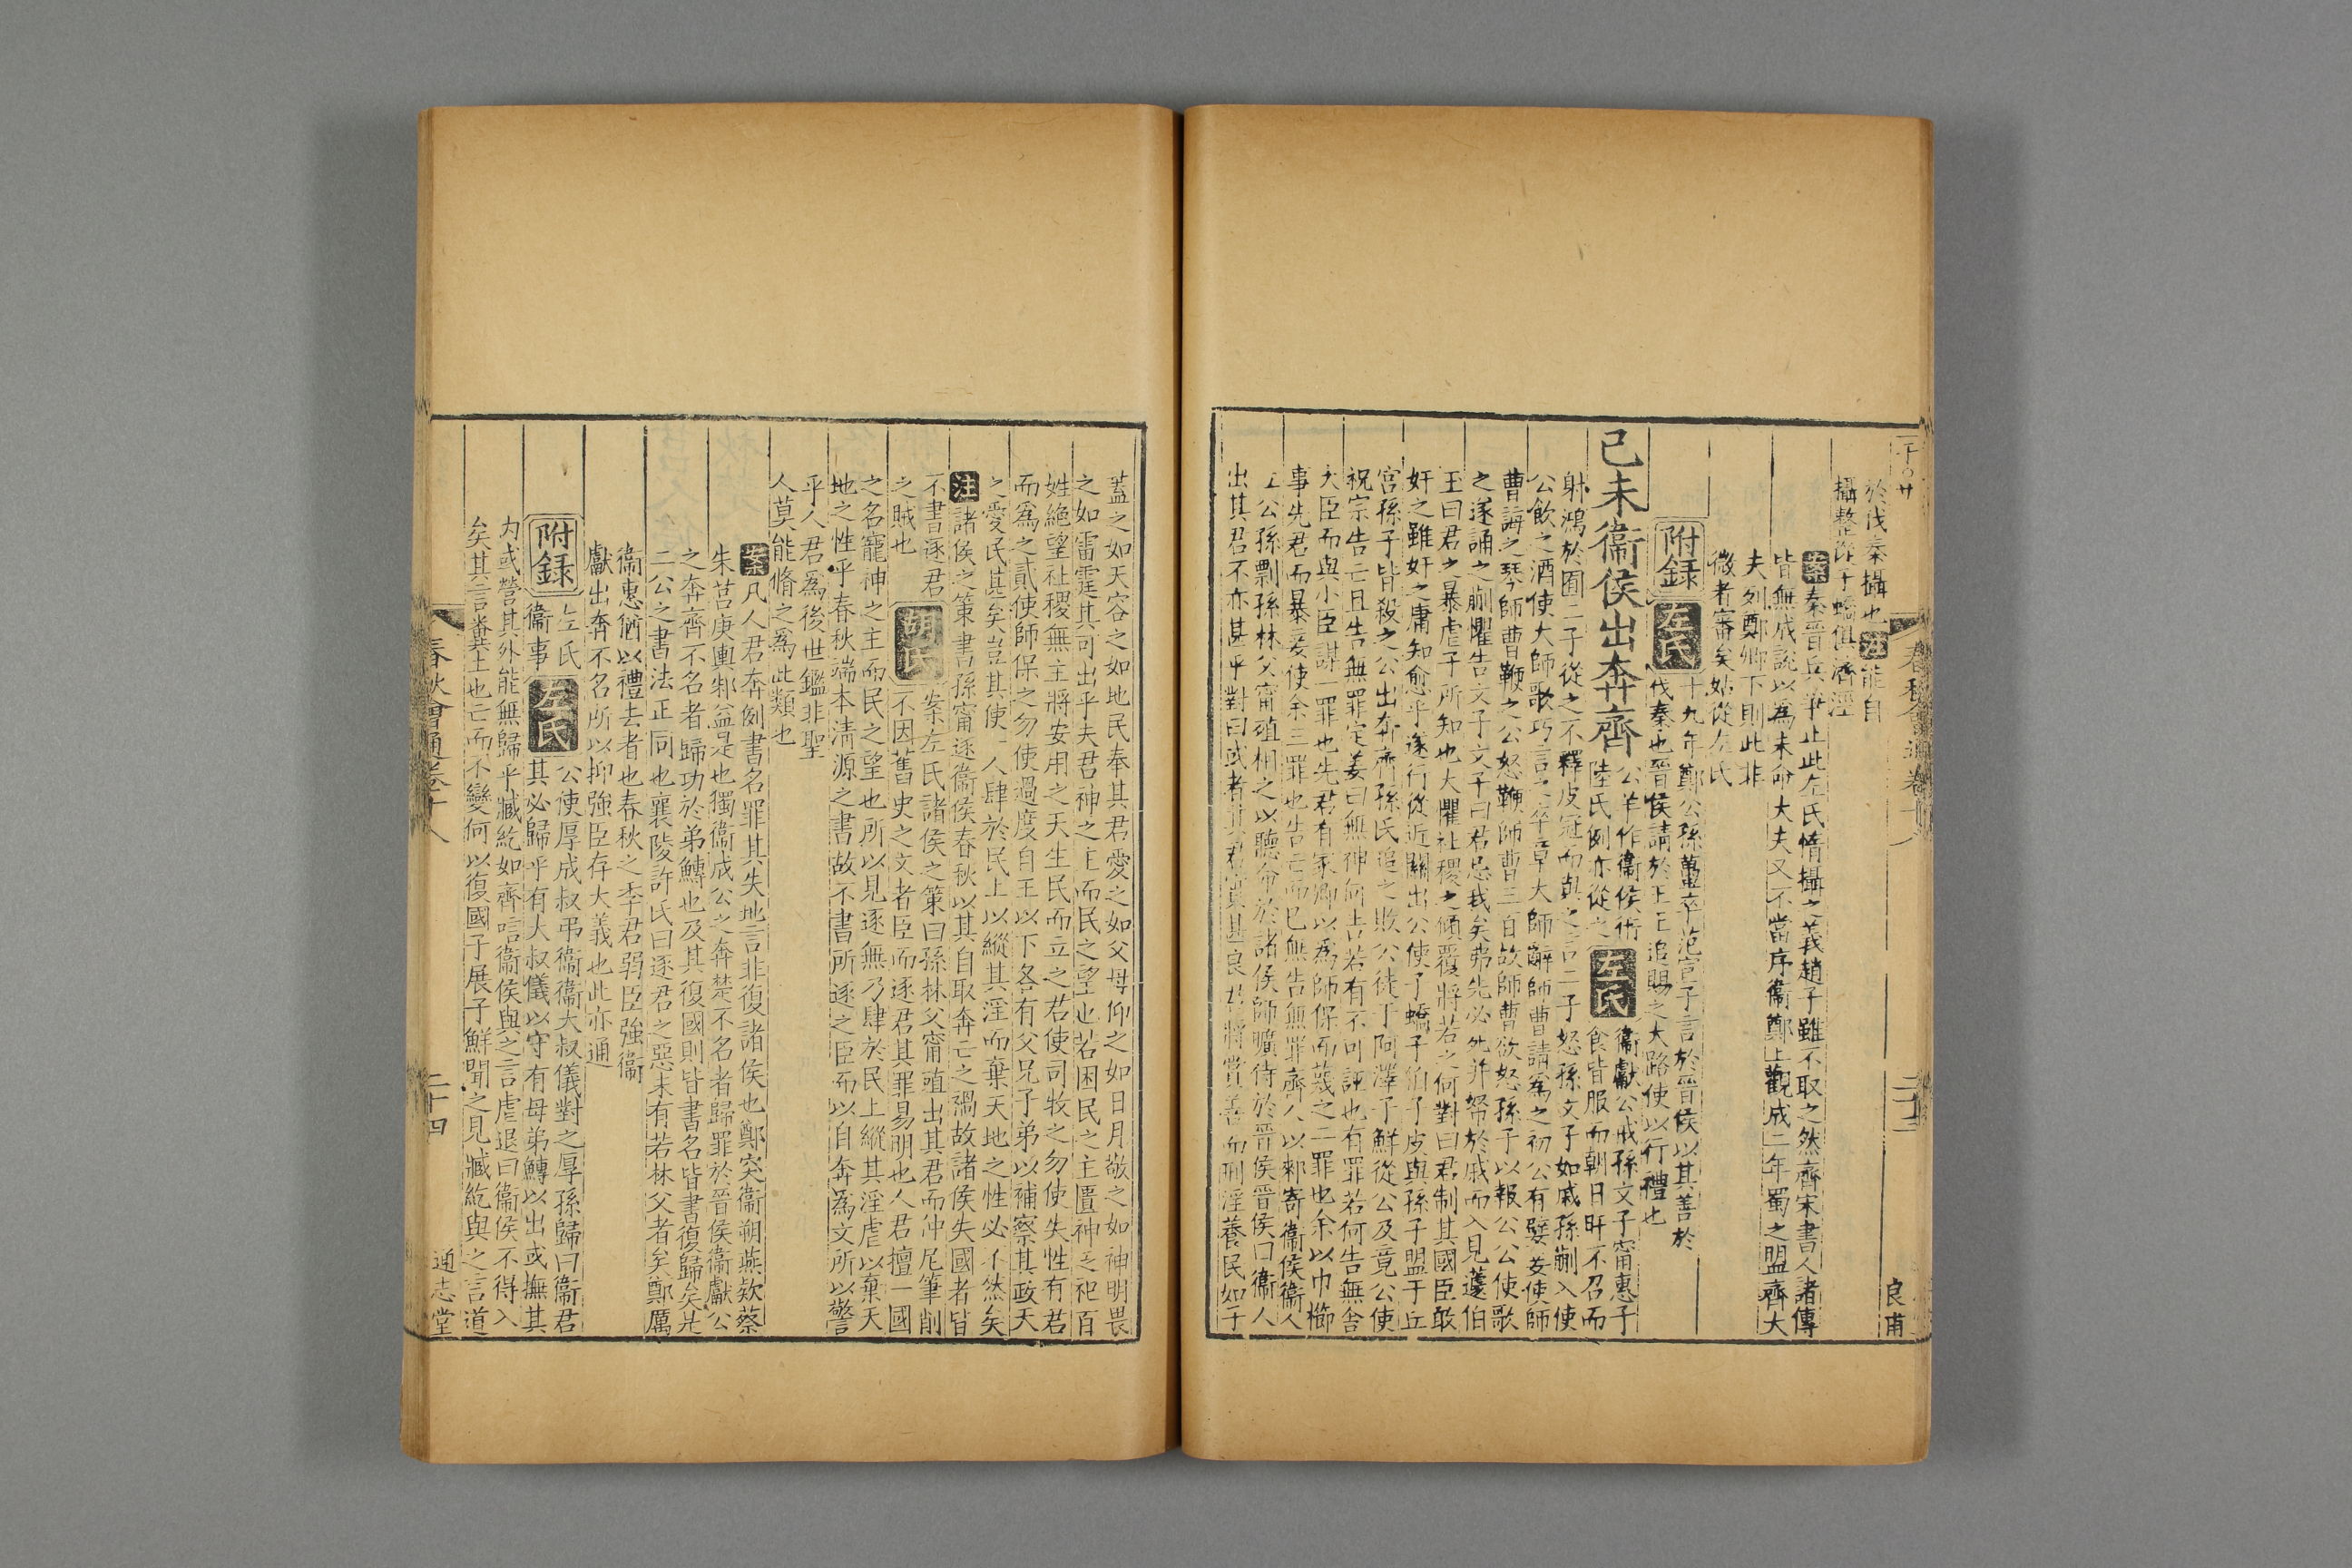 春秋會通卷十八
良甫
於伐秦攝也注能自
攝整從子蟜俱濟涇
案秦晉兵爭止此左氏惰攝之義趙子雖不取之然齊宋書人諸傳
皆無成說以為未命大夫又不當序衞鄭上觀成二年蜀之盟齊大
夫列鄭卿下則此非
微者審矣姑從左氏
附録左氏十九年鄭公孫蠆卒范宣子言於晉侯以其善於
伐秦也晉侯請於王王追賜之大路使以行禮也
己未衞侯出奔齊
公羊作衞侯衎
陸氏例亦從之
左氏衞獻公戒孫文子甯惠子
食皆服而朝日旰不召而
射鴻於囿二子從之不釋皮冠而與之言二子怒孫文子如戚孫蒯入使
公飲之酒使大師歌巧言之卒章大師辭師曹請爲之初公有嬖妾使師
曹誨之琴師曹鞭之公怒鞭師曹三百故師曹欲怒孫子以報公公使歌
之遂誦之蒯懼告文子文子曰君忌我矣弗先必死并帑於戚而入見蘧伯
玉曰君之暴虐子所知也大懼社稷之傾覆將若之何對曰君制其國臣敢
奸之雖奸之庸知愈乎遂行從近關出公使子蟜子伯子皮與孫子盟于丘
宮孫子皆殺之公出奔齊孫氏追之敗公徒于阿澤子鮮從公及竟公使
祝宗告亡且告無罪定姜曰無神何告若有不可誣也有罪若何告無舍
大臣而與小臣謀一罪也先君有冢卿以爲師保而蔑之二罪也余以巾櫛
事先君而暴妾使余三罪也告亡而已無告無罪齊人以郲寄衞侯衞人
立公孫剽孫林父甯殖相之以聽命於諸侯師曠侍於晉侯晉侯曰衞人
出其君不亦甚乎對曰或者其君實甚良君將賞善而刑淫養民如子
蓋之如天容之如地民奉其君愛之如父母仰之如日月敬之如神明畏
之如雷霆其可出乎夫君神之主而民之望也若困民之主匱神乏祀百
姓絕望社稷無主將安用之天生民而立之君使司牧之勿使失性有君
而爲之貳使師保之勿使過度自王以下各有父兄子弟以補察其政天
之愛民甚矣豈其使一人肆於民上以縱其淫而棄天地之性必不然矣
注諸侯之策書孫甯逐衞侯春秋以其自取奔亡之禍故諸侯失國者皆
不書逐君
之賊也
胡氏案左氏諸侯之策曰孫林父甯殖出其君而仲尼筆削
不因舊史之文者臣而逐君其罪易明也人君擅一國
之名寵神之主而民之望也所以見逐無乃肆於民上縱其淫虐以棄天
地之性乎春秋端本清源之書故不書所逐之臣而以自奔爲文所以警
乎人君爲後世鑑非聖
人莫能脩之爲此類也
案凡人君奔例書名罪其失地言非復諸侯也鄭突衞朔燕欵蔡
朱莒庚輿邾益是也獨衞成公之奔楚不名者歸罪於晉侯衞獻公
之奔齊不名者歸功於弟鱄也及其復國則皆書名皆書復歸矣是
二公之書法正同也襄陵許氏曰逐君之惡未有若林父者矣鄭厲
衞惠猶以禮去者也春秋之季君弱臣強衞
獻出奔不名所以抑強臣存大義也此亦通
附録左氏
衞事
左氏公使厚成叔弔衞衞大叔儀對之厚孫歸曰衞君
其必歸乎有大叔儀以守有母弟鱄以出或撫其
内或營其外能無歸乎臧紇如齊唁衞侯與之言虐退曰衞侯不得入
矣其言糞土也亡而不變何以復國子展子鮮聞之見臧紇與之言道
春秋會通卷十八
二十四
通志堂